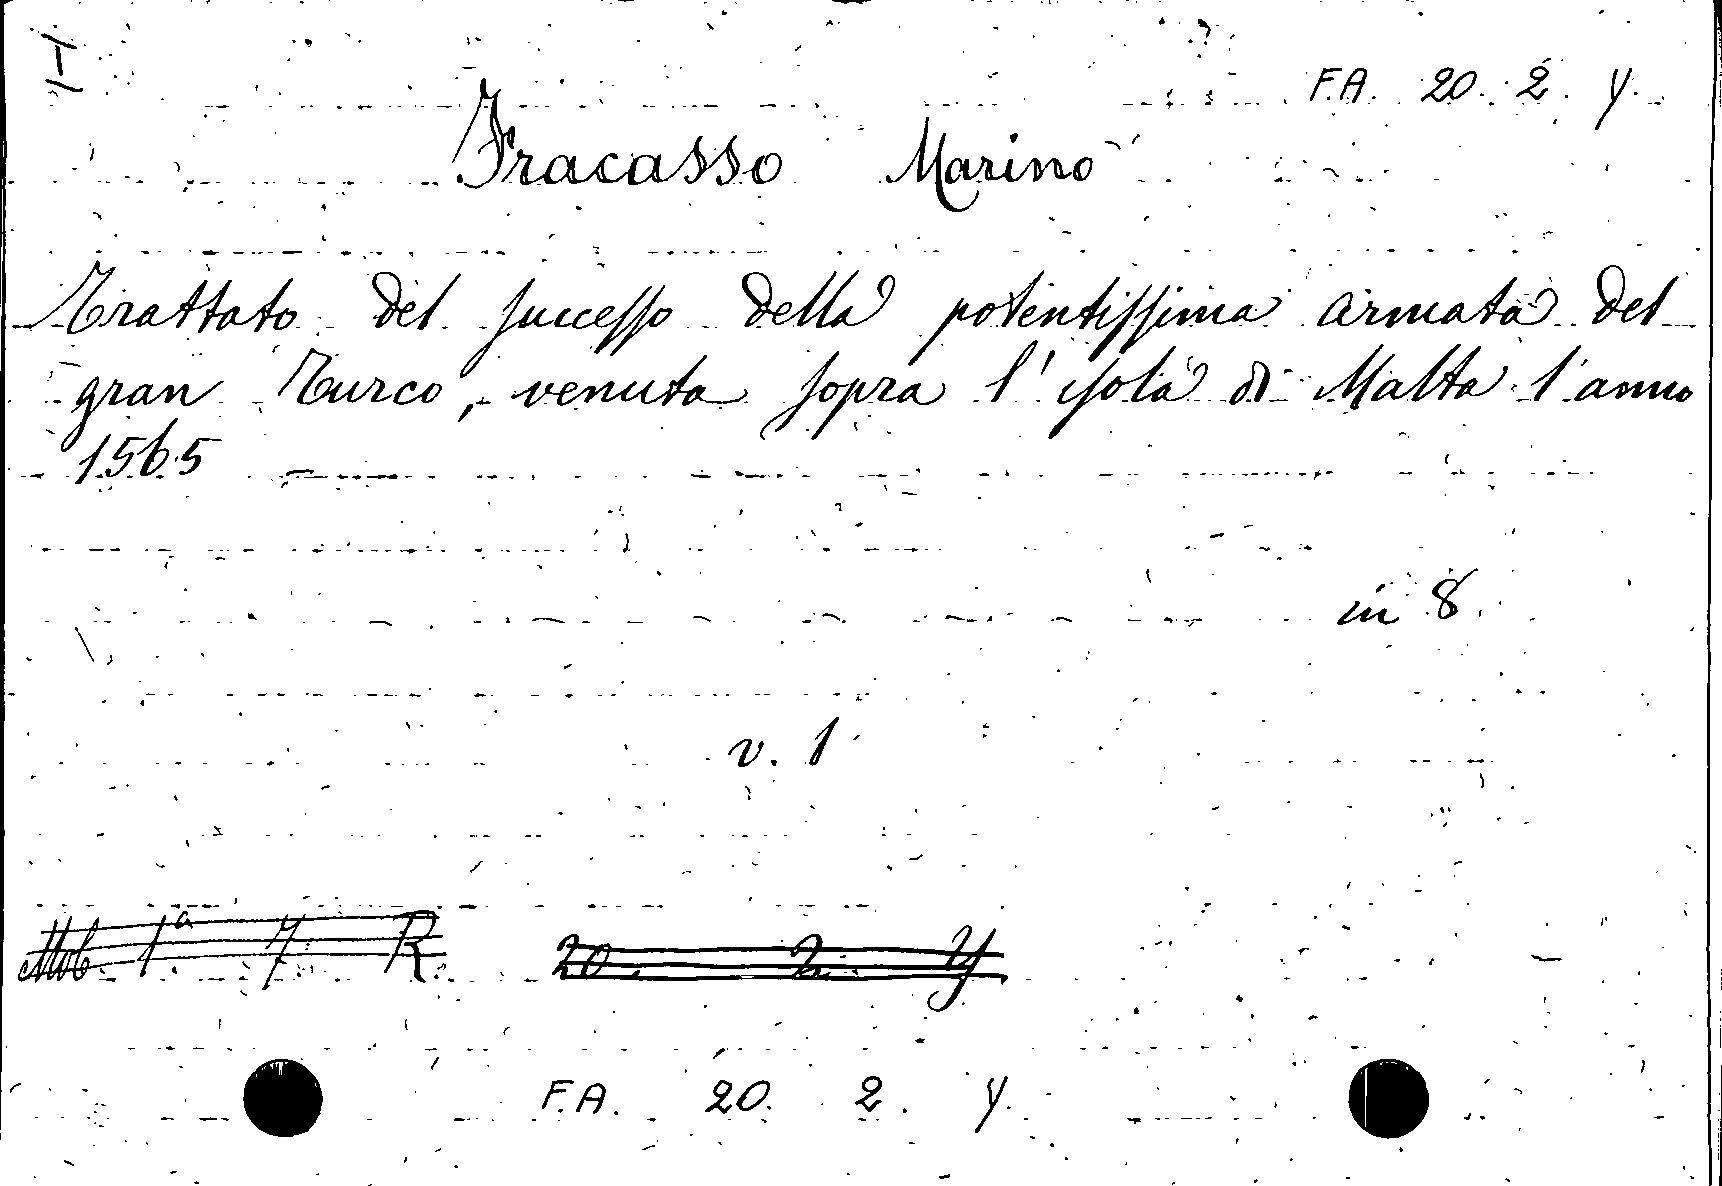 F.A. 20. 2. Y.
Fracasso Marino
Trattato del successo della potentissima armata del
gran Turco, venuta sopra l'isola di Malta l'anno
1565
in 8.
v. 1
1ª 7 R.
20. 2. Y
F.A. 20. 2. Y.